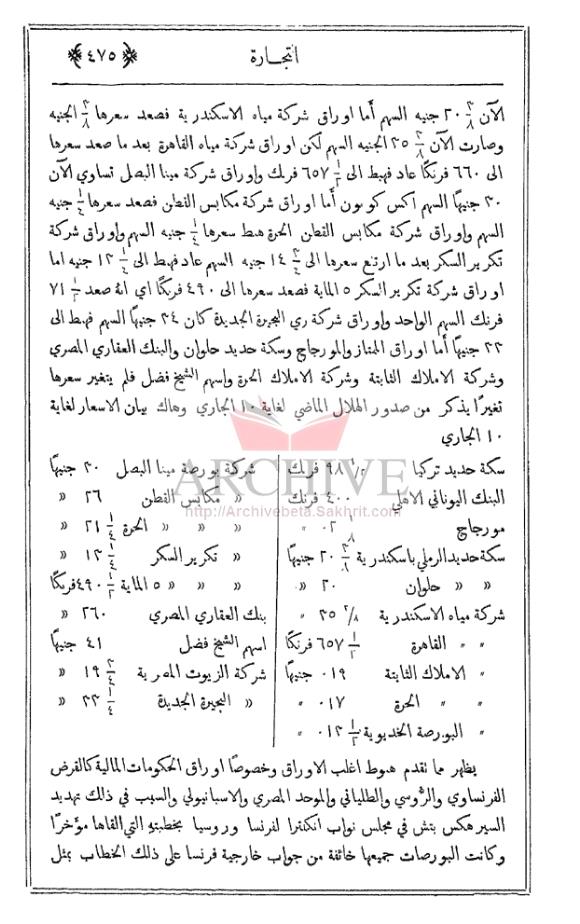 التجارة
﴿ ٤٧٥ ﴾
الآن ٢٠ ٣/٨ جنيه السهم أما اوراق شركة مياه الاسكندرية فصعد سعرها ٣/٨ الجنيه
وصارت الآن ٣٥ ٢/٨ الجنيه السهم لكن اوراق شركة مياه القاهرة بعد ما صعد سعرها
الى ٦٦٠ فرنكًا عاد فهبط الى ٦٥٧ ١/٢ فرنك واوراق شركة مينا البصل تساوي الآن
٢٠ جنيهًا السهم اكس كوبون أما اوراق شركة مكابس القطن فصعد سعرها ١/٤ جنيه
السهم واوراق شركة مكابس القطن الحرة هبط سعرها ١/٤ جنيه السهم واوراق شركة
تكرير السكر بعد ما ارتفع سعرها الى ١٤ ٣/٤ جنيه السهم عاد فهبط الى ١٣ ١/٤ جنيه اما
اوراق شركة تكرير السكر ٥ المایة فصعد سعرها الى ٤٩٠ فرنكًا اي انهُ صعد ٧١ ١/٢
فرنك السهم الواحد واوراق شركة ري البحيرة الجديدة كان ٢٤ جنيهًا السهم فهبط الى
٢٢ جنيهًا أما اوراق الممتاز والمورجاج وسكة حديد حلوان والبنك العقاري المصري
وشركة الاملاك الثابتة وشركة الاملاك الحرة واسهم الشيخ فضل فلم يتغير سعرها
تغيرًا يذكر من صدور الهلال الماضي لغاية ١٠ الجاري وهاك بيان الاسعار لغاية
١٠ الجاري
سكة حديد تركيا ٩٨ ١/٢ فرنك
البنك اليوناني الاهلي ٤٠٠ فرنك
مورجاج ٠٢ ١/٨ "
سكة حديد الرملي باسكندرية ٢٠ ٣/٨ جنيهًا
" " حلوان ٢٠ "
شركة مياه الاسكندرية ٣٥ ٢/٨ "
" " القاهرة ٦٥٧ ١/٢ فرنكًا
" الاملاك الثابتة ٠١٩ جنيهًا
" " الحرة ٠١٧ "
" البورصة الخديوية ٠١٣ ١/٢ "
شركة بورصة مينا البصل ٢٠ جنيهًا
" مكابس القطن ٢٦ "
" " " الحرة ٢١ ١/٤ "
" تكرير السكر ١٣ ١/٤ "
" " " ٥ المایة ٤٩٠ ١/٢ فرنكًا
بنك العقاري المصري ٢٦٠ "
اسهم الشيخ فضل ٤١ جنيهًا
شركة الزيوت المصرية ١٩ ٣/٤ "
" البحيرة الجديدة ٢٢ ١/٤ "
يظهر مما تقدم هبوط اغلب الاوراق وخصوصًا اوراق الحكومات المالية كالقرض
الفرنساوي والرُّوسي والطلياني والموحد المصري والاسبانيولي والسبب في ذلك تهديد
السير هكس بتش في مجلس نواب انكلترا لفرنسا وروسيا بخطبتهِ التي القاها مؤخرًا
وكانت البورصات جميعها خائفة من جواب خارجية فرنسا على ذلك الخطاب بمثل
ARCHIVE
http://Archivebeta.Sakhrit.com